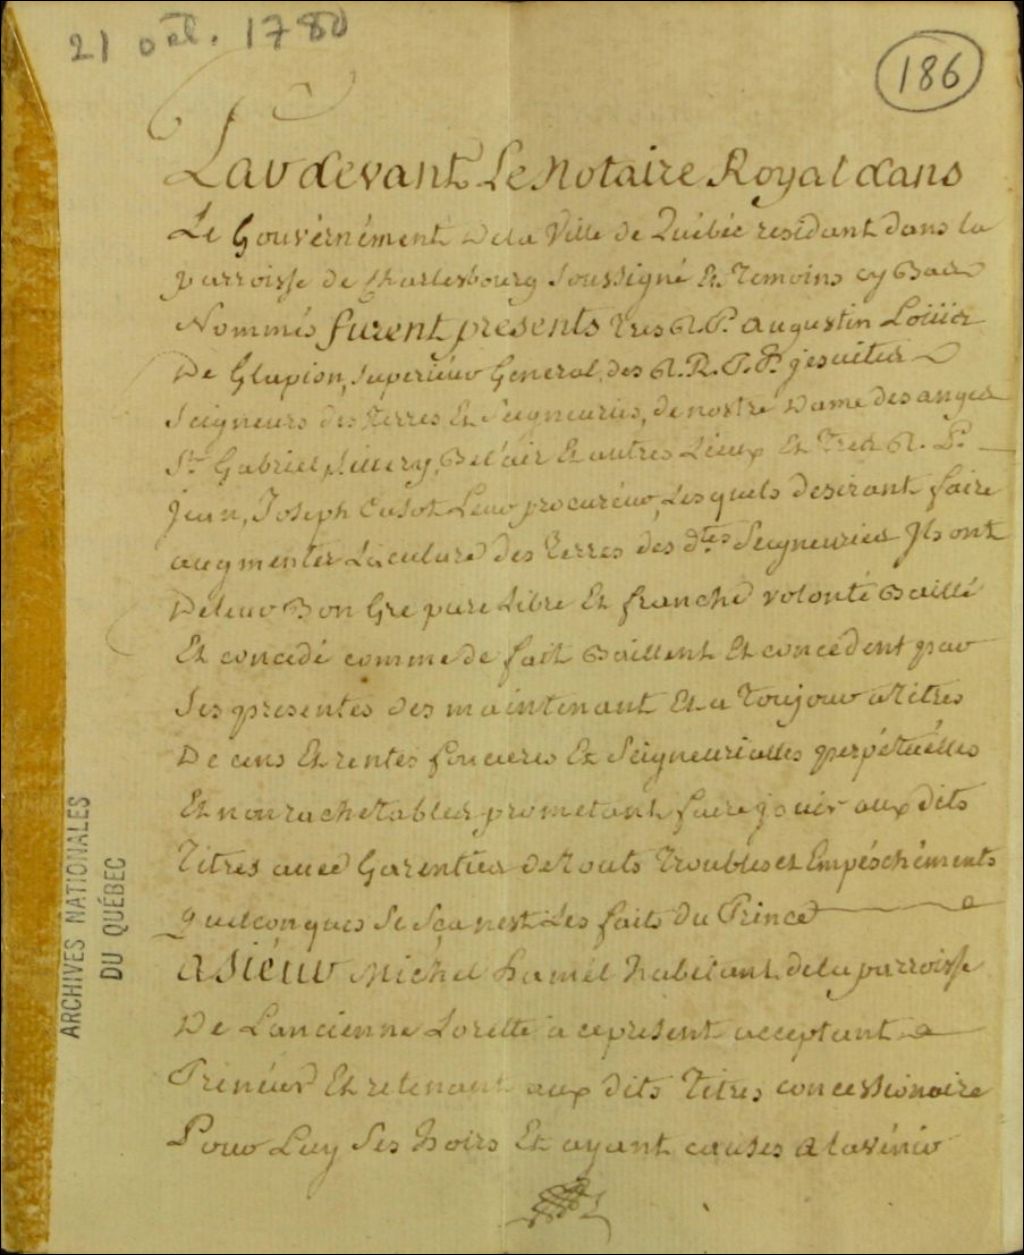 21 oct. 1780
186
Pardevant Le Notaire Royal dans
Le Gouvérnément dela Ville de Québéc residant dans la
parroisse de Charlesbourg Soussigné Et Temoins cy Bas
Nommés furent presents tres R. P. augustin Loüis
De Glapion, Superieur General des R. R. P. P. jesuites
Seigneurs des terres Et Seigneuries, de nostre Dame des anges
St. Gabriel, sillery, Bel'air Et autres Lieux Et Tres R. P.
Jean, Joseph Casot Leur procuréur, Lesquels desirant faire
augmenter La culure des terres des dtes Seigneuries Ils ont
De leur Bon Gre pure Libre Et franche volonté Baillé
Et concedé comme de fait Baillent Et concedent par
Ses presentes des maintenant Et a Toujour a titres
De cens Et rentes foncieres Et Seigneurialles perpétuélles
Et non rachetables prometant faire jouir aux dits
Titres avec Garenties de touts troubles et Empéschéments
quelconques Si Sça nest Les faits du Prince
a Siéur Michel hamel habitant dela parroisse
De Lancienne Lorette a cepresent acceptant
Prenéur Et retenant aux dits Titres concessionaire
Pour Luy Ses hoirs Et ayant causes a lavénir
ARCHIVES NATIONALES
DU QUÉBEC